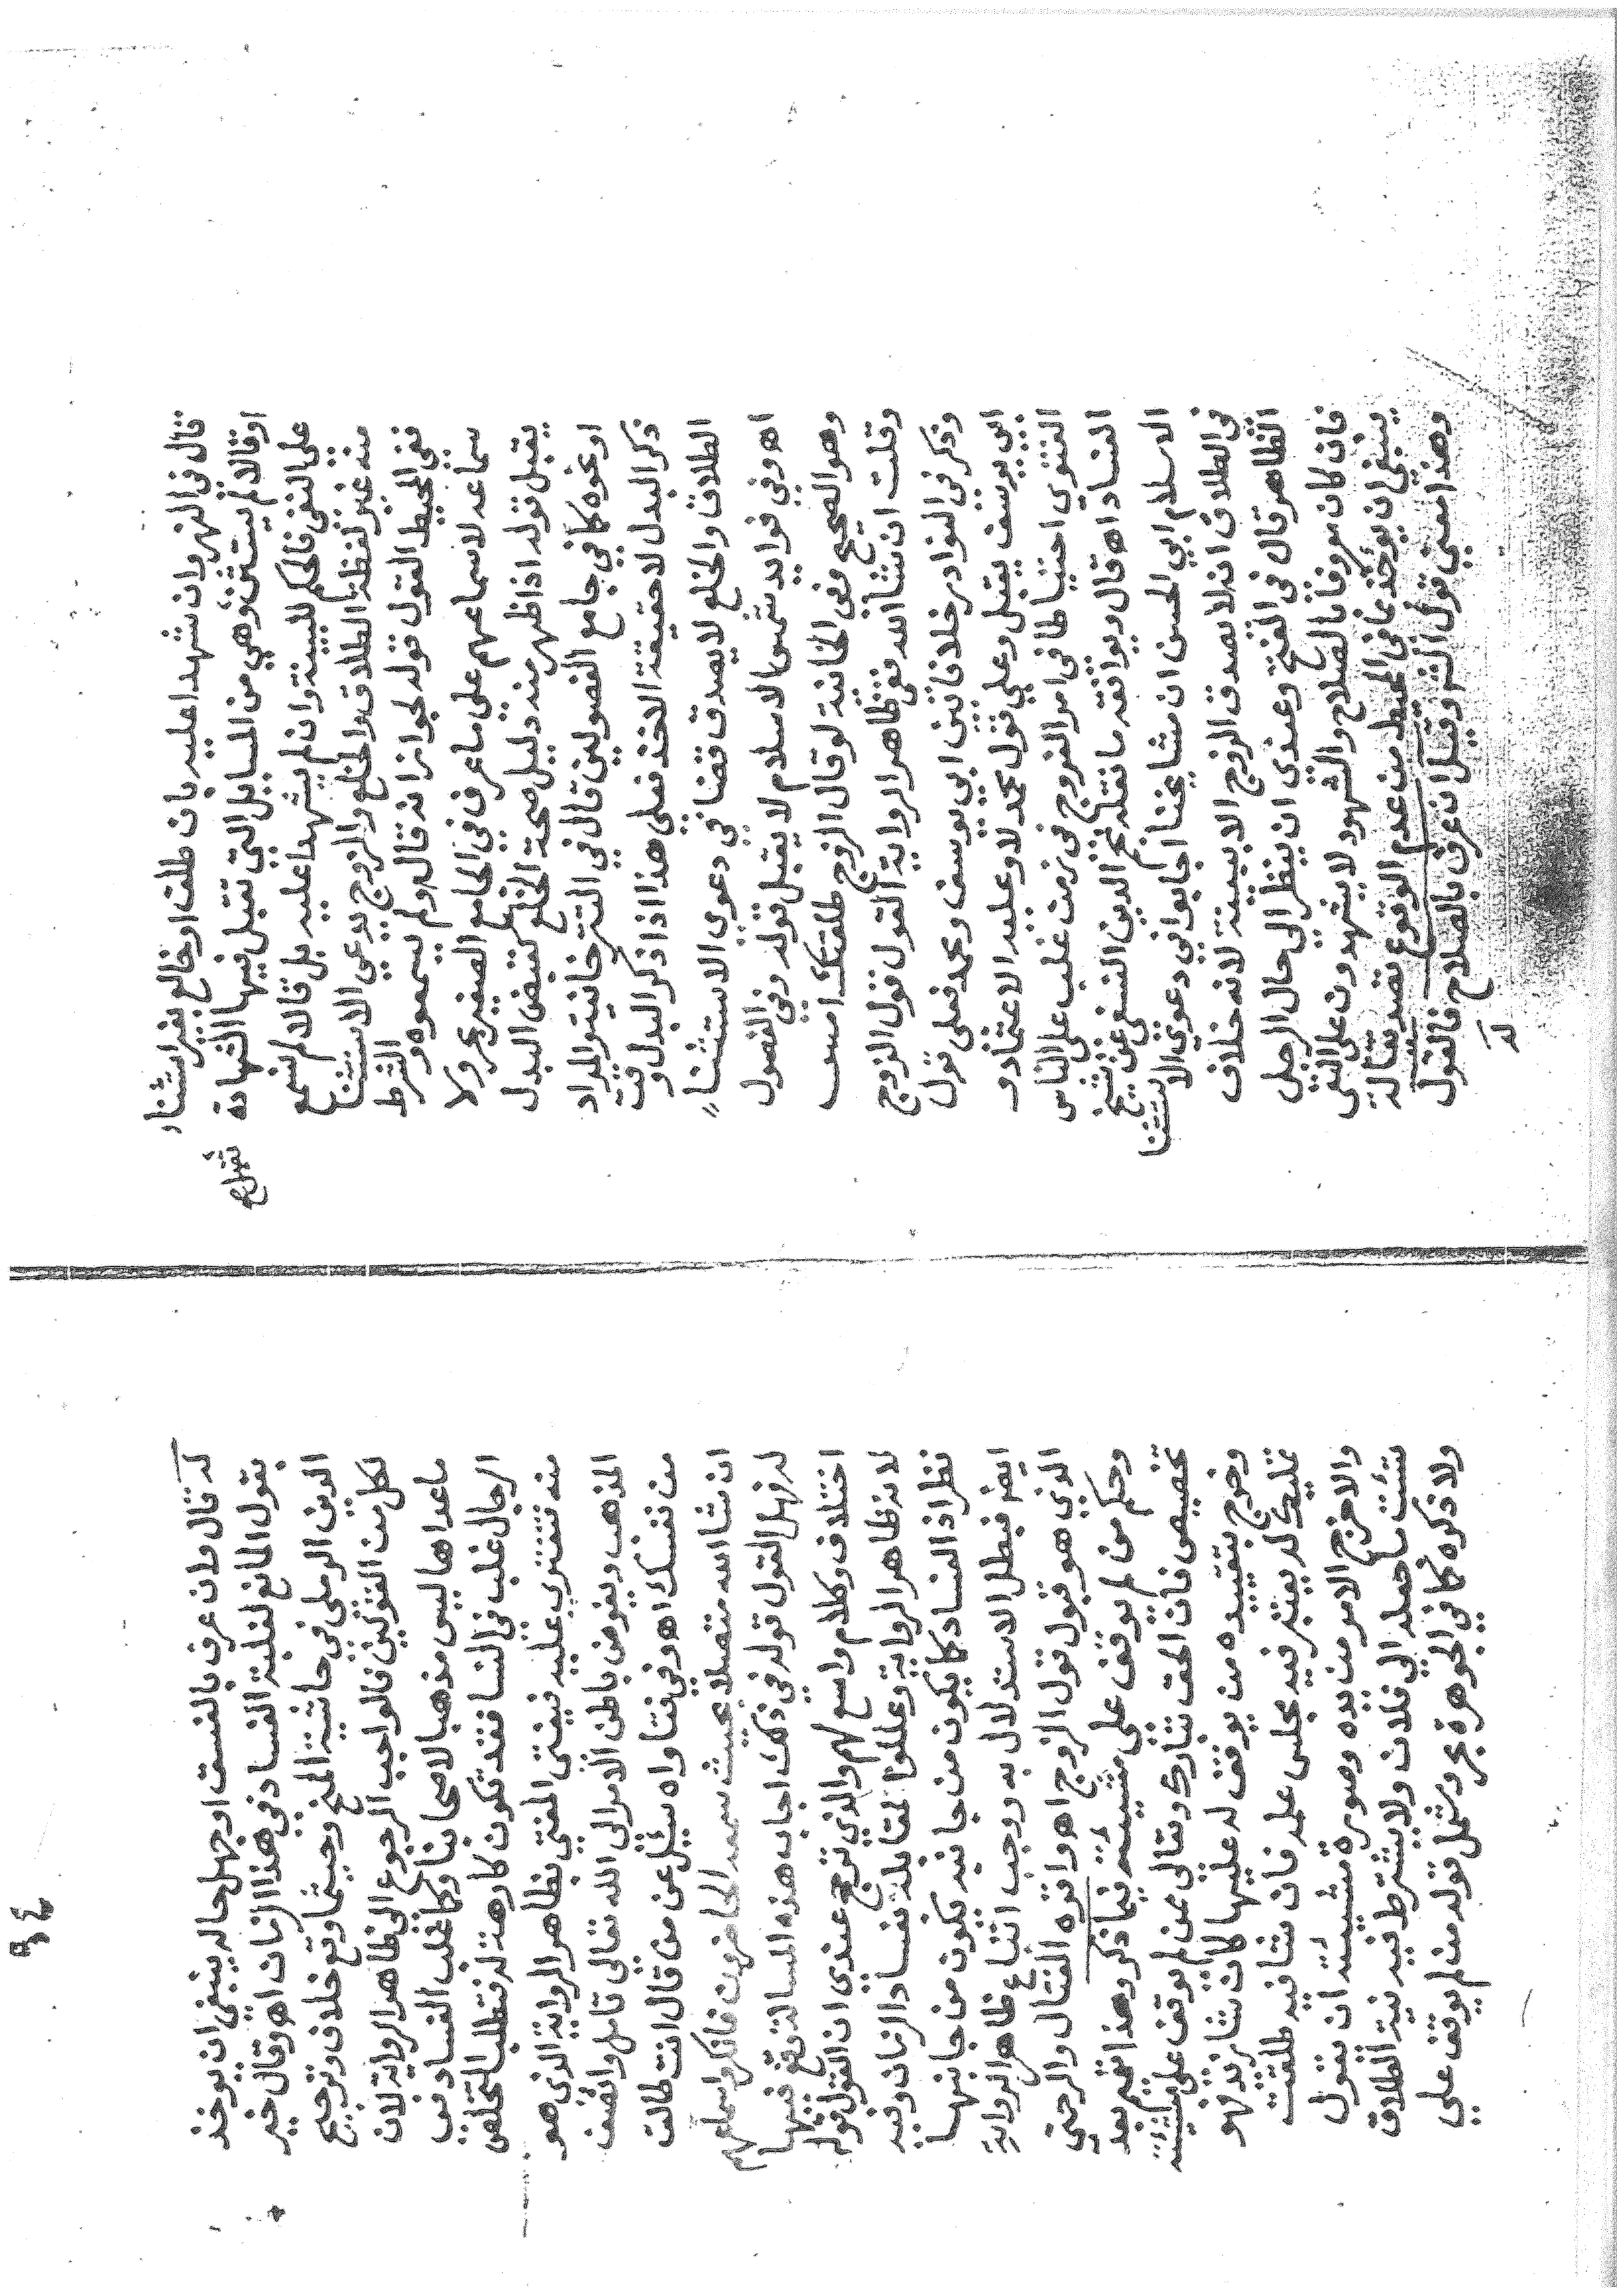 قال في النهر وان شهدا عليه بان طلق او خالع بغير استثناء
او قالا لم يستثن وهي من المسايل التي تقبل فيها الشهادة
على النفي فالحكم للبينة وان لم يشهدا عليه بل قالا لم نسمع
منه غير لفظة الطلاق والخلع والزوج يدعي الاستثنا
ففي المحيط القول قوله لجواز انه قاله ولم يسمعوه والشرط
سماعه لاسماعهم على ما عرف في الجامع الصغير بحر ولا
يقبل قوله اذا ظهر منه دليل صحة الخلع كقبض البدل
او نحوه كما في جامع الفصولين قال في التترخانية والمراد
ذكر البدل لا حقيقة الاخذ فعلى هذا اذا ذكر البدل وقت
الطلاق والخلع لا يصدق قضا في دعوى الاستثناء
اه وفي فوايد شمس الاسلام لا يقبل قوله وفي الفصول
وهو الصحيح وفي الخانية لو قال الزوج طلقتك امس
وقلت ان شا الله ففي ظاهر الرواية القول قول الزوج
وذكر في النوادر خلافا بين ابي يوسف ومحمد فعلى قول
ابي يوسف يقبل وعلى قول محمد لا وعليه الاعتماد و
الفتوى احتياطا في امر الفروج في زمن غلب على الناس
الفساد اه قال ويوافقه ما نقله نجم الدين النسفي عن شيخ
الاسلام ابي الحسن ان مشايخنا اجابوا في دعوى الاستثنا
في الطلاق انه لا يصدق الزوج الا ببينة لانه خلاف
الظاهر قال في الفتح وعندي ان ينظر الى حال الرجل
فان كان معروفا بالصلاح والشهود لا يشهدون على النفي
ينبغي ان يؤخذ بما في المحيط من عدم الوقوع تصديقا له
وهذا معنى قول الشر وقيل ان عرف بالصلاح فالقول
له
له قال وان عرف بالفسق او جهل حاله ينبغي ان يوخذ
بقول المانع لغلبة الفساد في هذا الزمان اه وقال خير
الدين الرملي في حاشية المنح وحيثما وقع خلاف وترجيح
لكل من القولين فالواجب الرجوع الى ظاهر الرواية لان
ما عداها ليس مذهبا لاصحابنا وكما غلب الفساد في
الرجال غلب في النسا فقد تكون كارهة له فتطلب التخلص
منه فتفتري عليه فيفتي المفتي بظاهر الرواية الذي هو
المذهب ويفوض باطن الامر الى الله تعالى تامل وانصف
من نفسك اه وفي فتاواه سئل عن من قال انت طالق
ان شا الله متصلا بحيث سمعه الحاضرون فانكروا سماعهم
له فهل القول قوله في ذلك اجاب هذه المسالة وقع فيها
اختلاف وكلام واسع لهم والذي ترجح عندي ان القول قوله
لانه ظاهر الرواية وعللوا لمقابله بفساد الزمان وفيه
نظر اذ الفساد كما يكون من جانبه يكون من جانبها
ايض فبطل الاستدلال به ووجب اتباع ظاهر الرواية
الذي هو قبول قول الزوج اه واقره الفتال والرحمتي
وحكم من لم يوقف على مشيئته فيما ذكر وهذا تعميم بعد
تخصيص فان الحق تبارك وتعالى ممن لم يوقف على مشيئته
وخرج بتقييده من يوقف له عليها كان شا زيد فهو
تمليك له يعتبر فيه مجلس علمه فان شا فيه طلقت
والا خرج الامر من يده وصورة مشيئته ان يقول
شئت ما جعله الي فلان ولا يشترط فيه نية الطلاق
ولا ذكره كما في الجوهرة بحر وشمل قوله من لم يوقف على